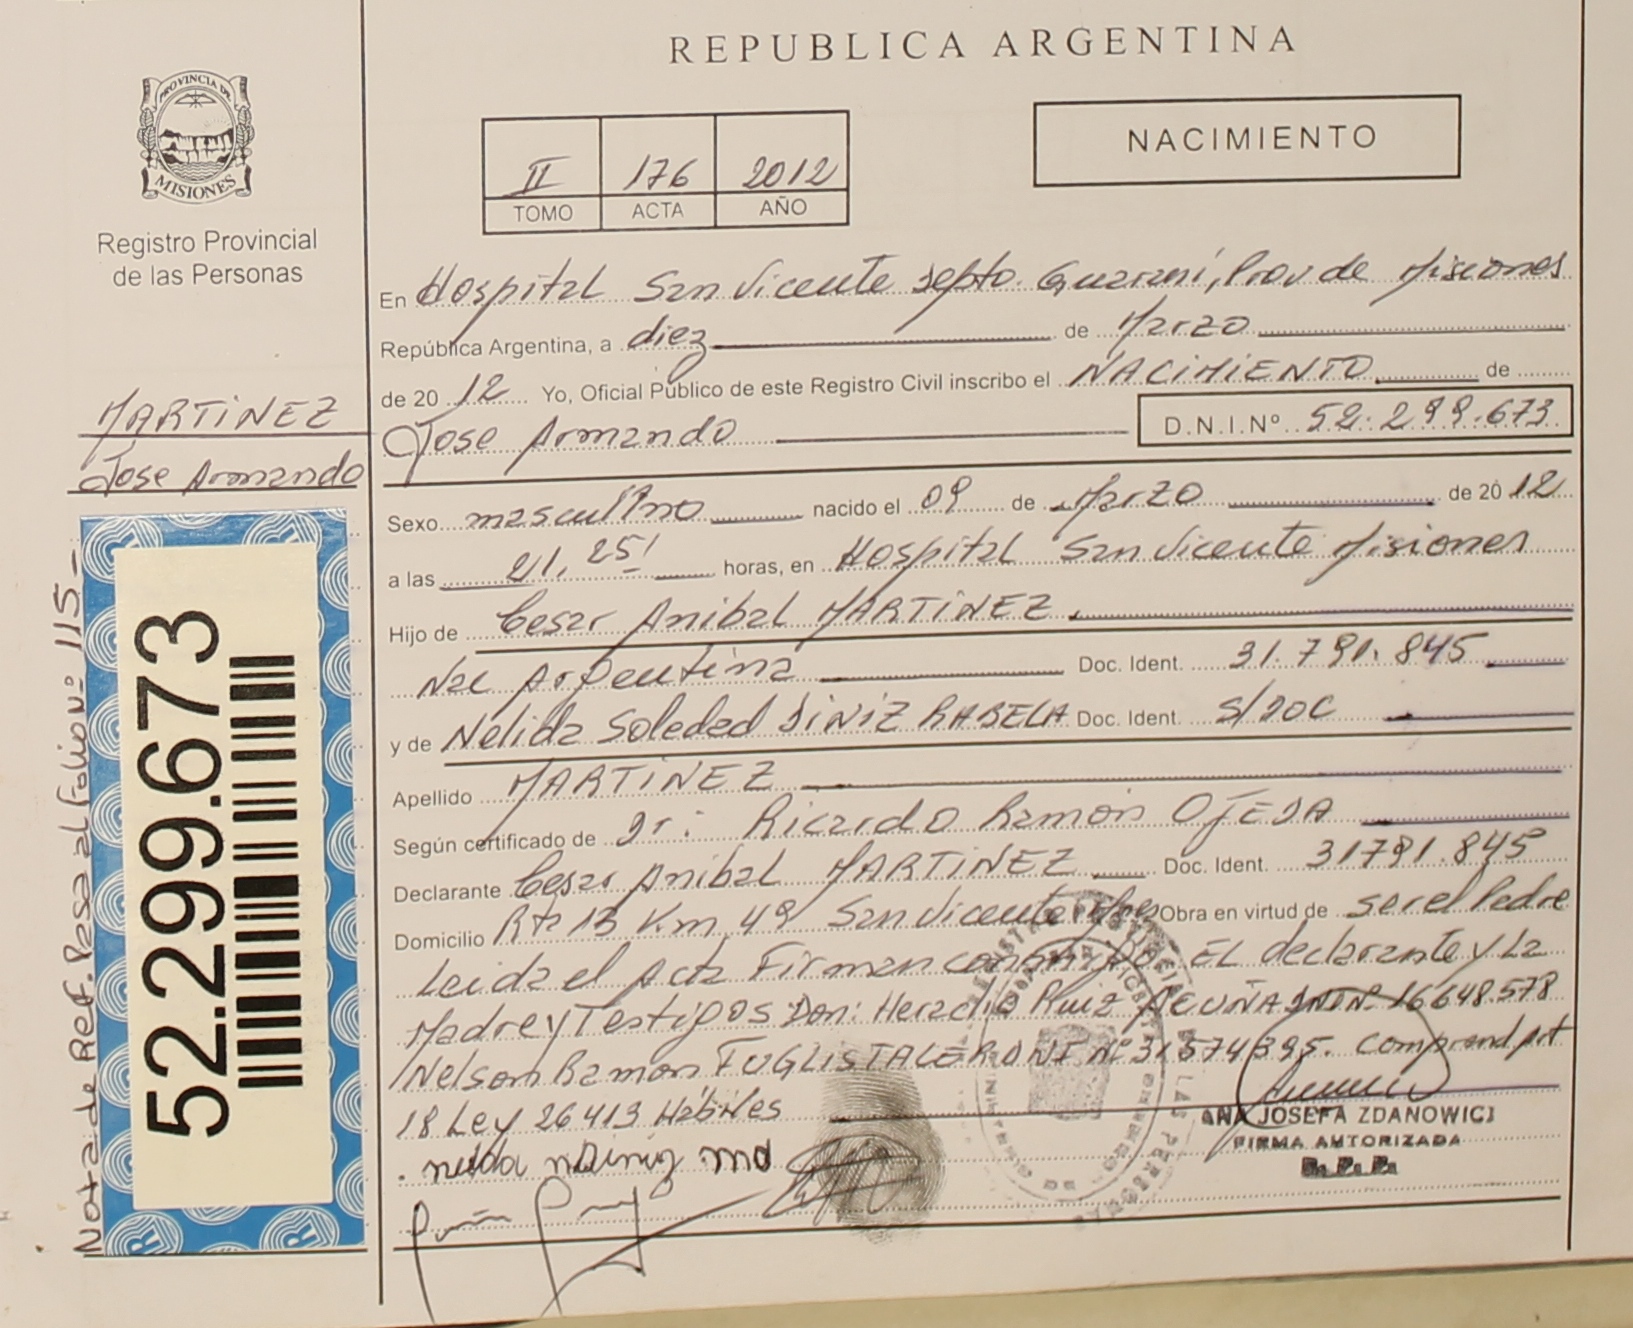 REPUBLICA ARGENTINA
PROVINCIA DE
MISIONES
Registro Provincial
de las Personas
II 176 2012
TOMO ACTA AÑO
NACIMIENTO
MARTINEZ
Jose Armando
Nota de Ref. Pasa al Folio nº 115
52.299.673
En Hospital San Vicente Depto. Guarani, Prov de Misiones
República Argentina, a diez de Marzo
de 20 12 Yo, Oficial Público de este Registro Civil inscribo el NACIMIENTO de
Jose Armando D.N.I.Nº 52.299.673
Sexo masculino nacido el 09 de Marzo de 20 12
a las 21,25 horas, en Hospital San Vicente Misiones
Hijo de Cesar Anibal MARTINEZ
Nac Argentina Doc. Ident. 31.791.845
y de Nelida Soledad DINIZ RABELA Doc. Ident. S/DOC
Apellido MARTINEZ
Según certificado de Dr: Ricardo Ramón OJEDA
Declarante Cesar Anibal MARTINEZ Doc. Ident. 31791.845
Domicilio Rta 13 Km 49 San Vicente Mnes Obra en virtud de ser el Padre
Leida el Acta Firman conmigo EL declarante y La
Madre y Testigos Don: Heraclio Ruiz ACUÑA DNI Nº 16648.578
Nelson Ramon FUGLISTALER DNI Nº 31574395. Comprend art
18 Ley 26413 Hábiles
ANA JOSEFA ZDANOWICZ
FIRMA AUTORIZADA